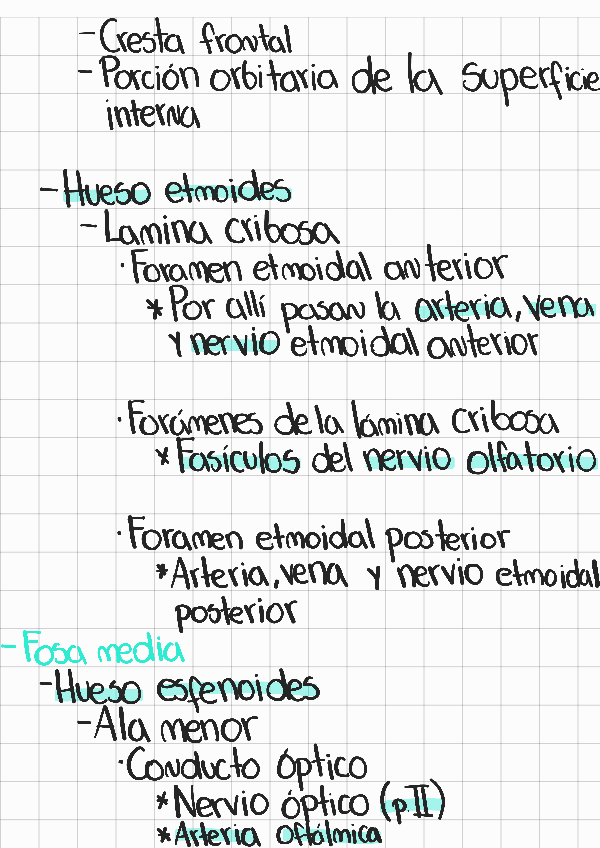 - Cresta frontal
- Porción orbitaria de la superficie
interna
- Hueso etmoides
- Lamina cribosa
· Foramen etmoidal anterior
* Por allí pasan la arteria, vena
y nervio etmoidal anterior
· Forámenes de la lámina cribosa
* Fasículos del nervio olfatorio
· Foramen etmoidal posterior
* Arteria, vena y nervio etmoidal
posterior
- Fosa media
- Hueso esfenoides
- Ala menor
· Conducto óptico
* Nervio óptico (p.II)
* Arteria oftálmica